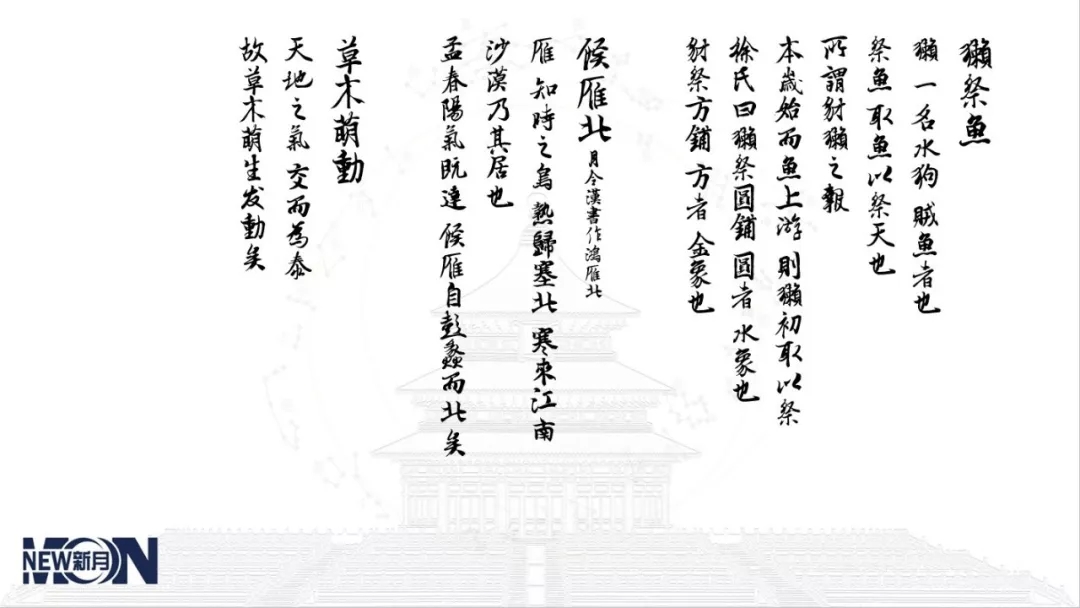 獺祭魚
獺 一名水狗 賊魚者也
祭魚 取魚以祭天也
所謂豺獺之報
本歲始而魚上游 則獺初取以祭
徐氏曰獺祭圓鋪 圓者 水象也
豺祭方鋪 方者 金象也
候雁北 月令漢書作鴻雁北
雁 知時之鳥 熱歸塞北 寒來江南
沙漠乃其居也
孟春陽氣既達 候雁自彭蠡而北矣
草木萌動
天地之氣 交而為泰
故草木萌生发動矣
NEW新月
MOON